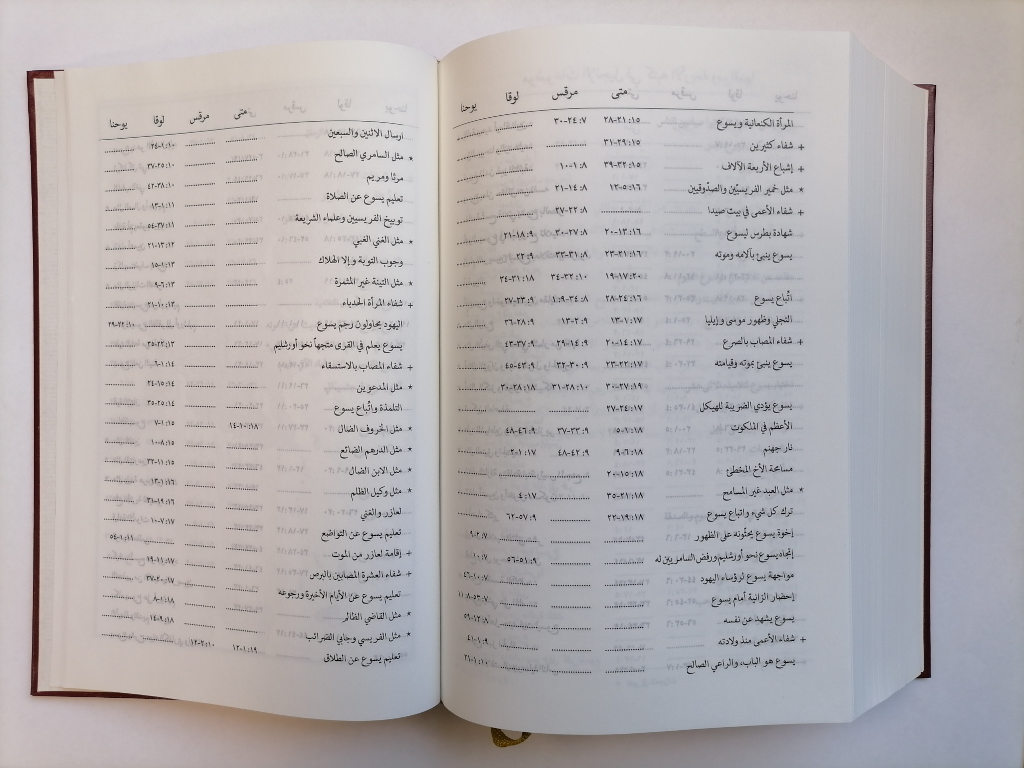 متى مرقس لوقا يوحنا
المرأة الكنعانية ويسوع ١٥: ٢١-٢٨ ٧: ٢٤-٣٠
+ شفاء كثيرين ١٥: ٢٩-٣١
+ إشباع الأربعة الآلاف ١٥: ٣٢-٣٩ ٨: ١-١٠
* مثل خمير الفريسيّين والصدّوقيين ١٦: ٥-١٢ ٨: ١٤-٢١
+ شفاء الأعمى في بيت صيدا ٨: ٢٢-٢٧
شهادة بطرس ليسوع ١٦: ١٣-٢٠ ٨: ٢٧-٣٠ ٩: ١٨-٢١
يسوع ينبئ بآلامه وموته ١٦: ٢١-٢٣ ٨: ٣١-٣٣ ٩: ٢٢
٢٠: ١٧-١٩ ١٠: ٣٢-٣٤ ١٨: ٣١-٣٤
اتّباع يسوع ١٦: ٢٤-٢٨ ٨: ٣٤-٩: ١ ٩: ٢٣-٢٧
التجلي وظهور موسى وإيليا ١٧: ١-١٣ ٩: ٢-١٣ ٩: ٢٨-٣٦
+ شفاء المصاب بالصرع ١٧: ١٤-٢٠ ٩: ١٤-٢٩ ٩: ٣٧-٤٣
يسوع ينبئ بموته وقيامته ١٧: ٢٢-٢٣ ٩: ٣٠-٣٢ ٩: ٤٣-٤٥
١٩: ٢٧-٣٠ ١٠: ٢٨-٣١ ١٨: ٢٨-٣٠
يسوع يؤدي الضريبة للهيكل ١٧: ٢٤-٢٧
الأعظم في الملكوت ١٨: ١-٥ ٩: ٣٣-٣٧ ٩: ٤٦-٤٨
نار جهنم ١٨: ٦-٩ ٩: ٤٢-٤٨ ١٧: ١-٢
مسامحة الأخ المخطئ ١٨: ١٥-٢٠
* مثل العبد غير المسامح ١٨: ٢١-٣٥ ١٧: ٤
ترك كل شيء واتباع يسوع ١٨: ١٩-٢٢ ٩: ٥٧-٦٢
إخوة يسوع يحثّونه على الظهور ٧: ٢-٩
إتجاه يسوع نحو أورشليم ورفض السامريين له ٩: ٥١-٥٦ ٧: ١٠
مواجهة يسوع لرؤساء اليهود ٧: ١٠-٤٦
إحضار الزانية أمام يسوع ٧: ٥٣-٨: ١١
يسوع يشهد عن نفسه ٨: ١٢-٥٩
+ شفاء الأعمى منذ ولادته ٩: ١-٤١
يسوع هو الباب، والراعي الصالح ١٠: ١-٢١
متى مرقس لوقا يوحنا
ارسال الاثنين والسبعين ١٠: ١-٢٤
* مثل السامري الصالح ١٠: ٢٥-٣٧
مرثا ومريم ١٠: ٣٨-٤٢
تعليم يسوع عن الصلاة ١١: ١-١٣
توبيخ الفريسيين وعلماء الشريعة ١١: ٣٧-٥٤
* مثل الغني الغبي ١٢: ١٣-٢١
وجوب التوبة وإلا الهلاك ١٣: ١-٥
* مثل التينة غير المثمرة ١٣: ٦-٩
+ شفاء المرأة الحدباء ١٣: ١٠-٢١
اليهود يحاولون رجم يسوع ١٠: ٢٢-٣٩
يسوع يعلم في القرى متجهاً نحو أورشليم ١٣: ٢٢-٣٥
+ شفاء المصاب بالاستسقاء ١٤: ١-٦
* مثل المدعوين ١٤: ١٥-٢٤
التلمذة واتّباع يسوع ١٤: ٢٥-٣٥
* مثل الخروف الضال ١٨: ١٠-١٤ ١٥: ١-٧
* مثل الدرهم الضائع ١٥: ٨-١٠
* مثل الابن الضال ١٥: ١١-٣٢
* مثل وكيل الظلم ١٦: ١-١٣
لعازر والغني ١٦: ١٩-٣١
تعليم يسوع عن التواضع ١٧: ٧-١٠
+ إقامة لعازر من الموت ١١: ١-٥٤
+ شفاء العشرة المصابين بالبرص ١٧: ١١-١٩
تعليم يسوع عن الأيام الأخيرة ورجوعه ١٧: ٢٠-٣٧
* مثل القاضي الظالم ١٨: ١-٨
* مثل الفريسي وجابي الضرائب ١٨: ٩-١٤
تعليم يسوع عن الطلاق ١٩: ١-١٢ ١٠: ٢-١٢